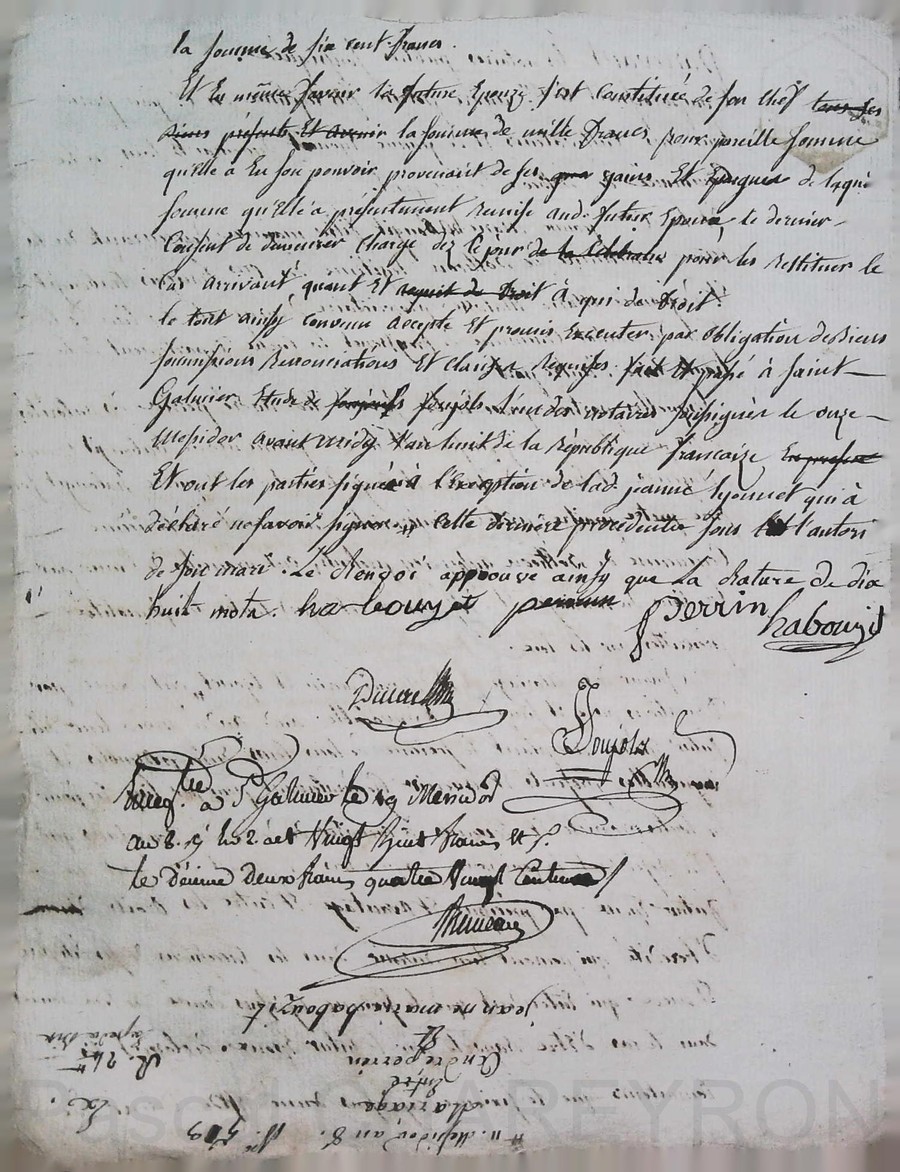 la somme de six cent francs.
Et En même faveur la future Epouze s'est Constituée de son Chef tous ses
biens présents Et avenir la somme de mille francs pour pareille somme
qu'Elle a En son pouvoir provenant de ses gains Et Epargnes de laque
somme qu'Elle a présentement remise aud. futur Epoux, le dernier
Consent de demeurer Chargé dez le jour de la Célébration pour les restituer le
Cas arrivant quant Et à qui de Droit.
le tout ainsy convenu accepté Et promis Executer par obligation de Biens
soumissions renonciations Et clauses requises fait Et passé à saint
Galmier Etude de Soujols l'un des notaires soussignés le onze
Messidor avant midy l'an huit de la république francaize
Et ont les parties signé à l'Exception de lad. jeanne Lyonnet qui à
déclaré ne savoir signer, Cette dernière procédente sous l'autori
de son mari. Le Renvoi approuve ainsy que La Rature de dix
huit mots. haBouzit perrin Perrin habouzit
Soujols
à St Galmier le 19 Messidor
an 8. Vingt huit francs Et
le Dixieme Deux francs quatre Vingt Centimes
11 Messidor an 8. N. 503
Mariage
Entre
André perrin
Et
jeanne marie habouzit